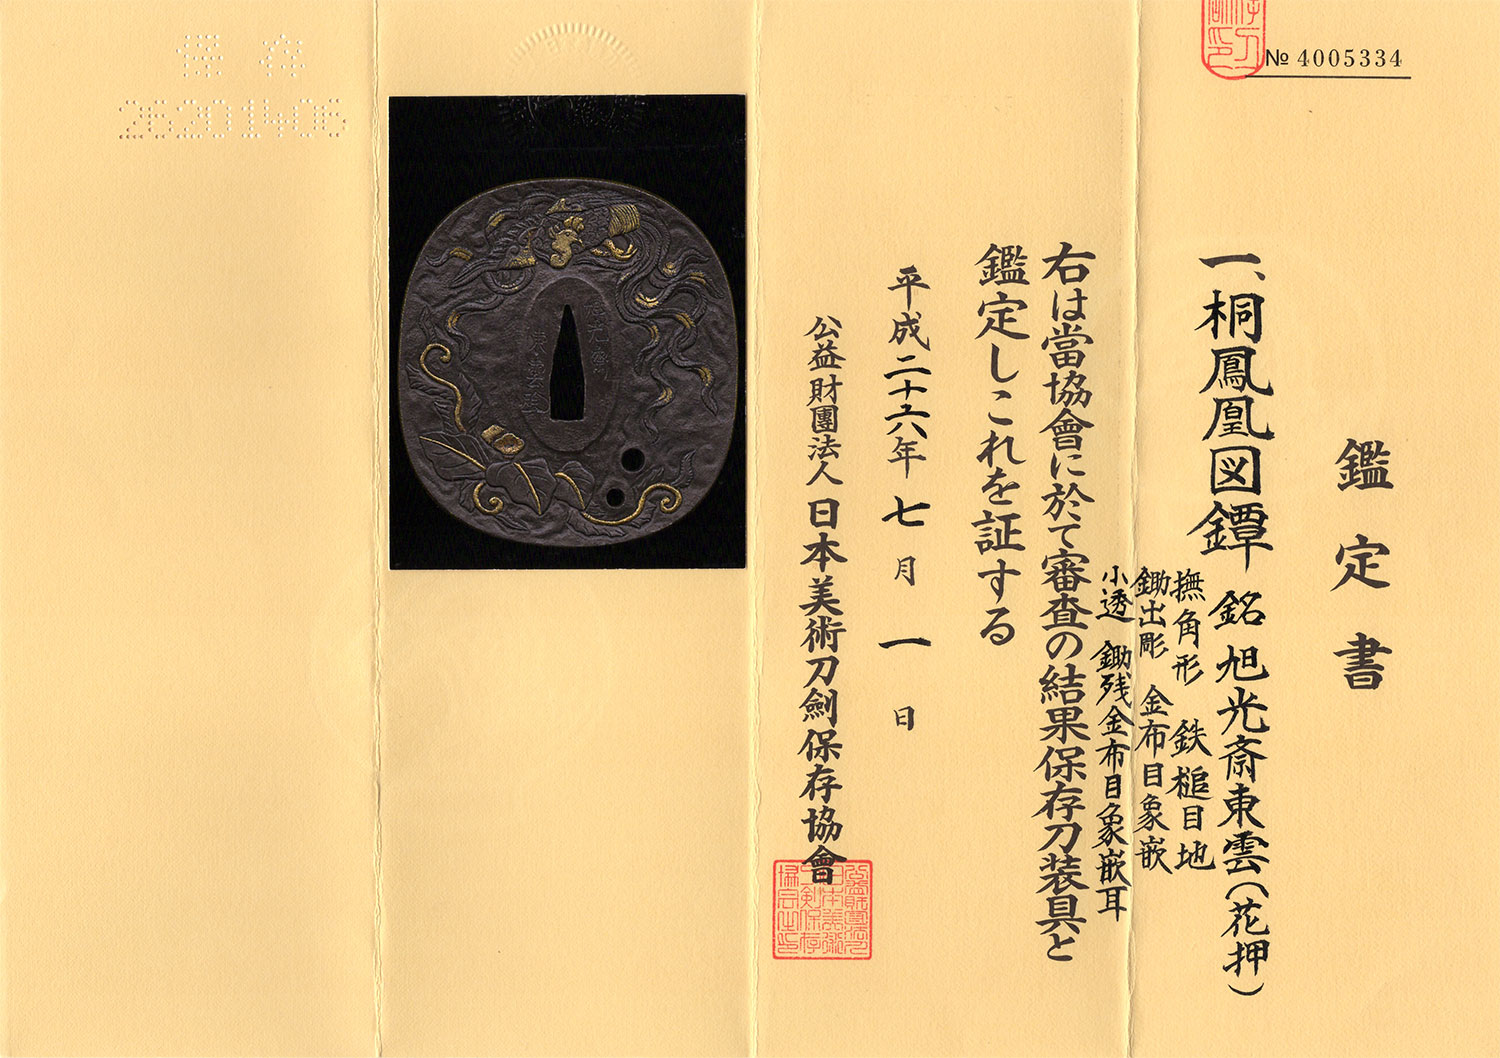 № 4005334
鑑定書
一、桐鳳凰図鐔 銘 旭光斎東雲(花押)
撫角形 鉄槌目地
鋤出彫 金布目象嵌
小透 鋤残金布目象嵌耳
右は當協會に於て審査の結果保存刀装具と
鑑定しこれを証する
平成二十六年七月一日
公益財團法人日本美術刀劍保存協會
保存
26201406